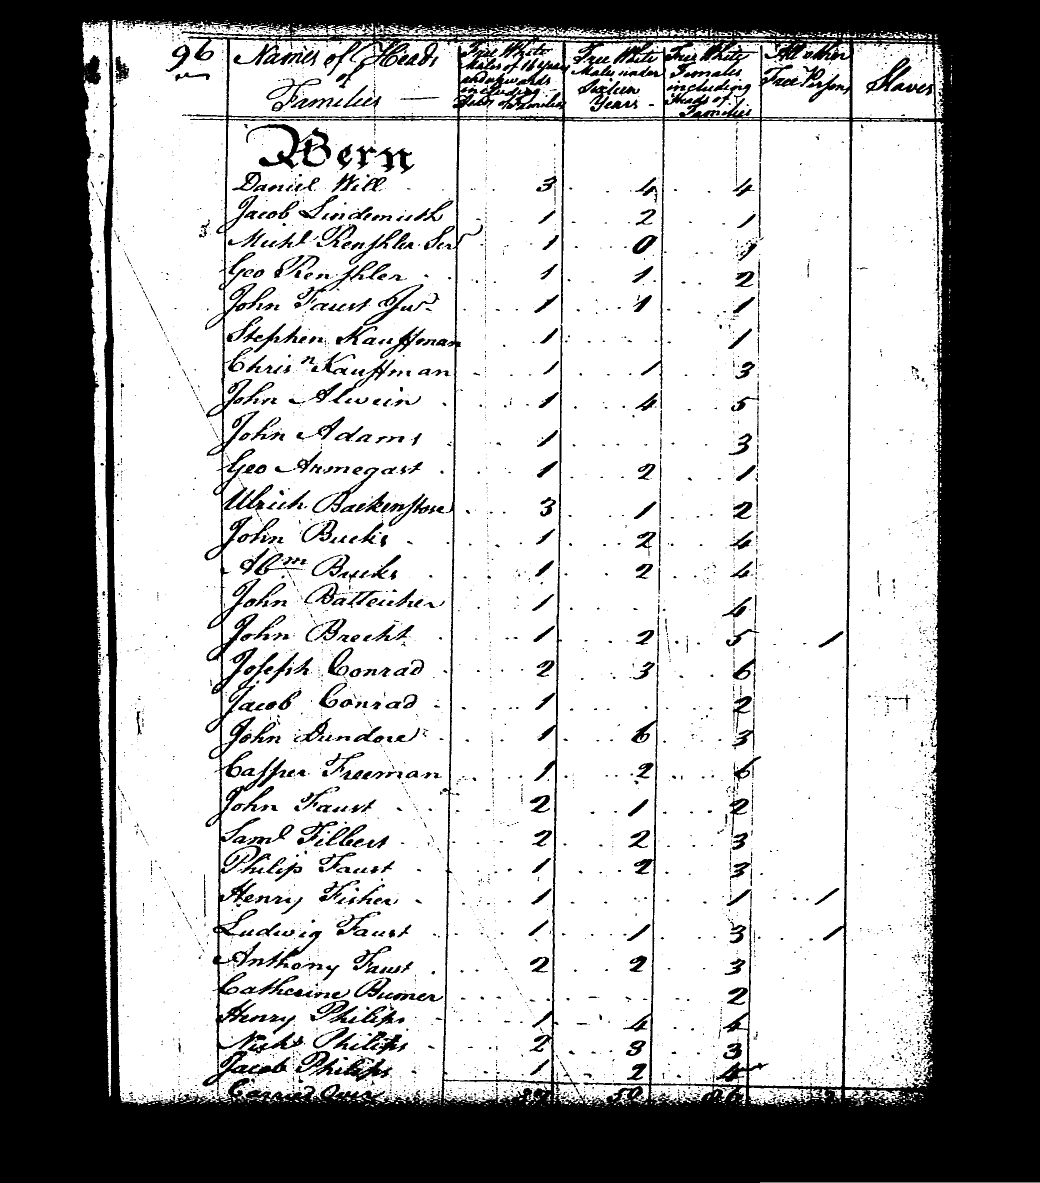 96 Names of Heads of Families — Free White Males of 16 years and upwards including Heads of Families Free White Males under Sixteen Years - Free White Females including Heads of Families All other Free Persons Slaves
Bern
Daniel Will 3 4 4
Jacob Lindemuth 1 2 1
Michl Renshler Senr 1 0 1
Geo Renshler 1 1 2
John Faust Junr 1 1 1
Stephen Kauffman 1 1
Chrisn Kauffman 1 1 3
John Alwein 1 4 5
John Adams 1 3
Geo Armegast 1 2 1
Ulrich Backenstose 3 1 2
John Bucks 1 2 4
Abm Bucks 1 2 4
John Batteicher 1 4
John Brecht 1 2 5 1
Joseph Conrad 2 3 6
Jacob Conrad 1 2
John Dundore 1 6 3
Casper Freeman 1 2 6
John Faust 2 1 2
Saml Filbert 2 2 3
Philip Faust 1 2 3
Henry Fisher 1 1 1
Ludwig Faust 1 1 3 1
Anthony Faust 2 2 3
Catherine Bumer 2
Henry Philips 1 4 4
Nichs Philips 2 3 3
Jacob Philips 1 2 4
Carried Over